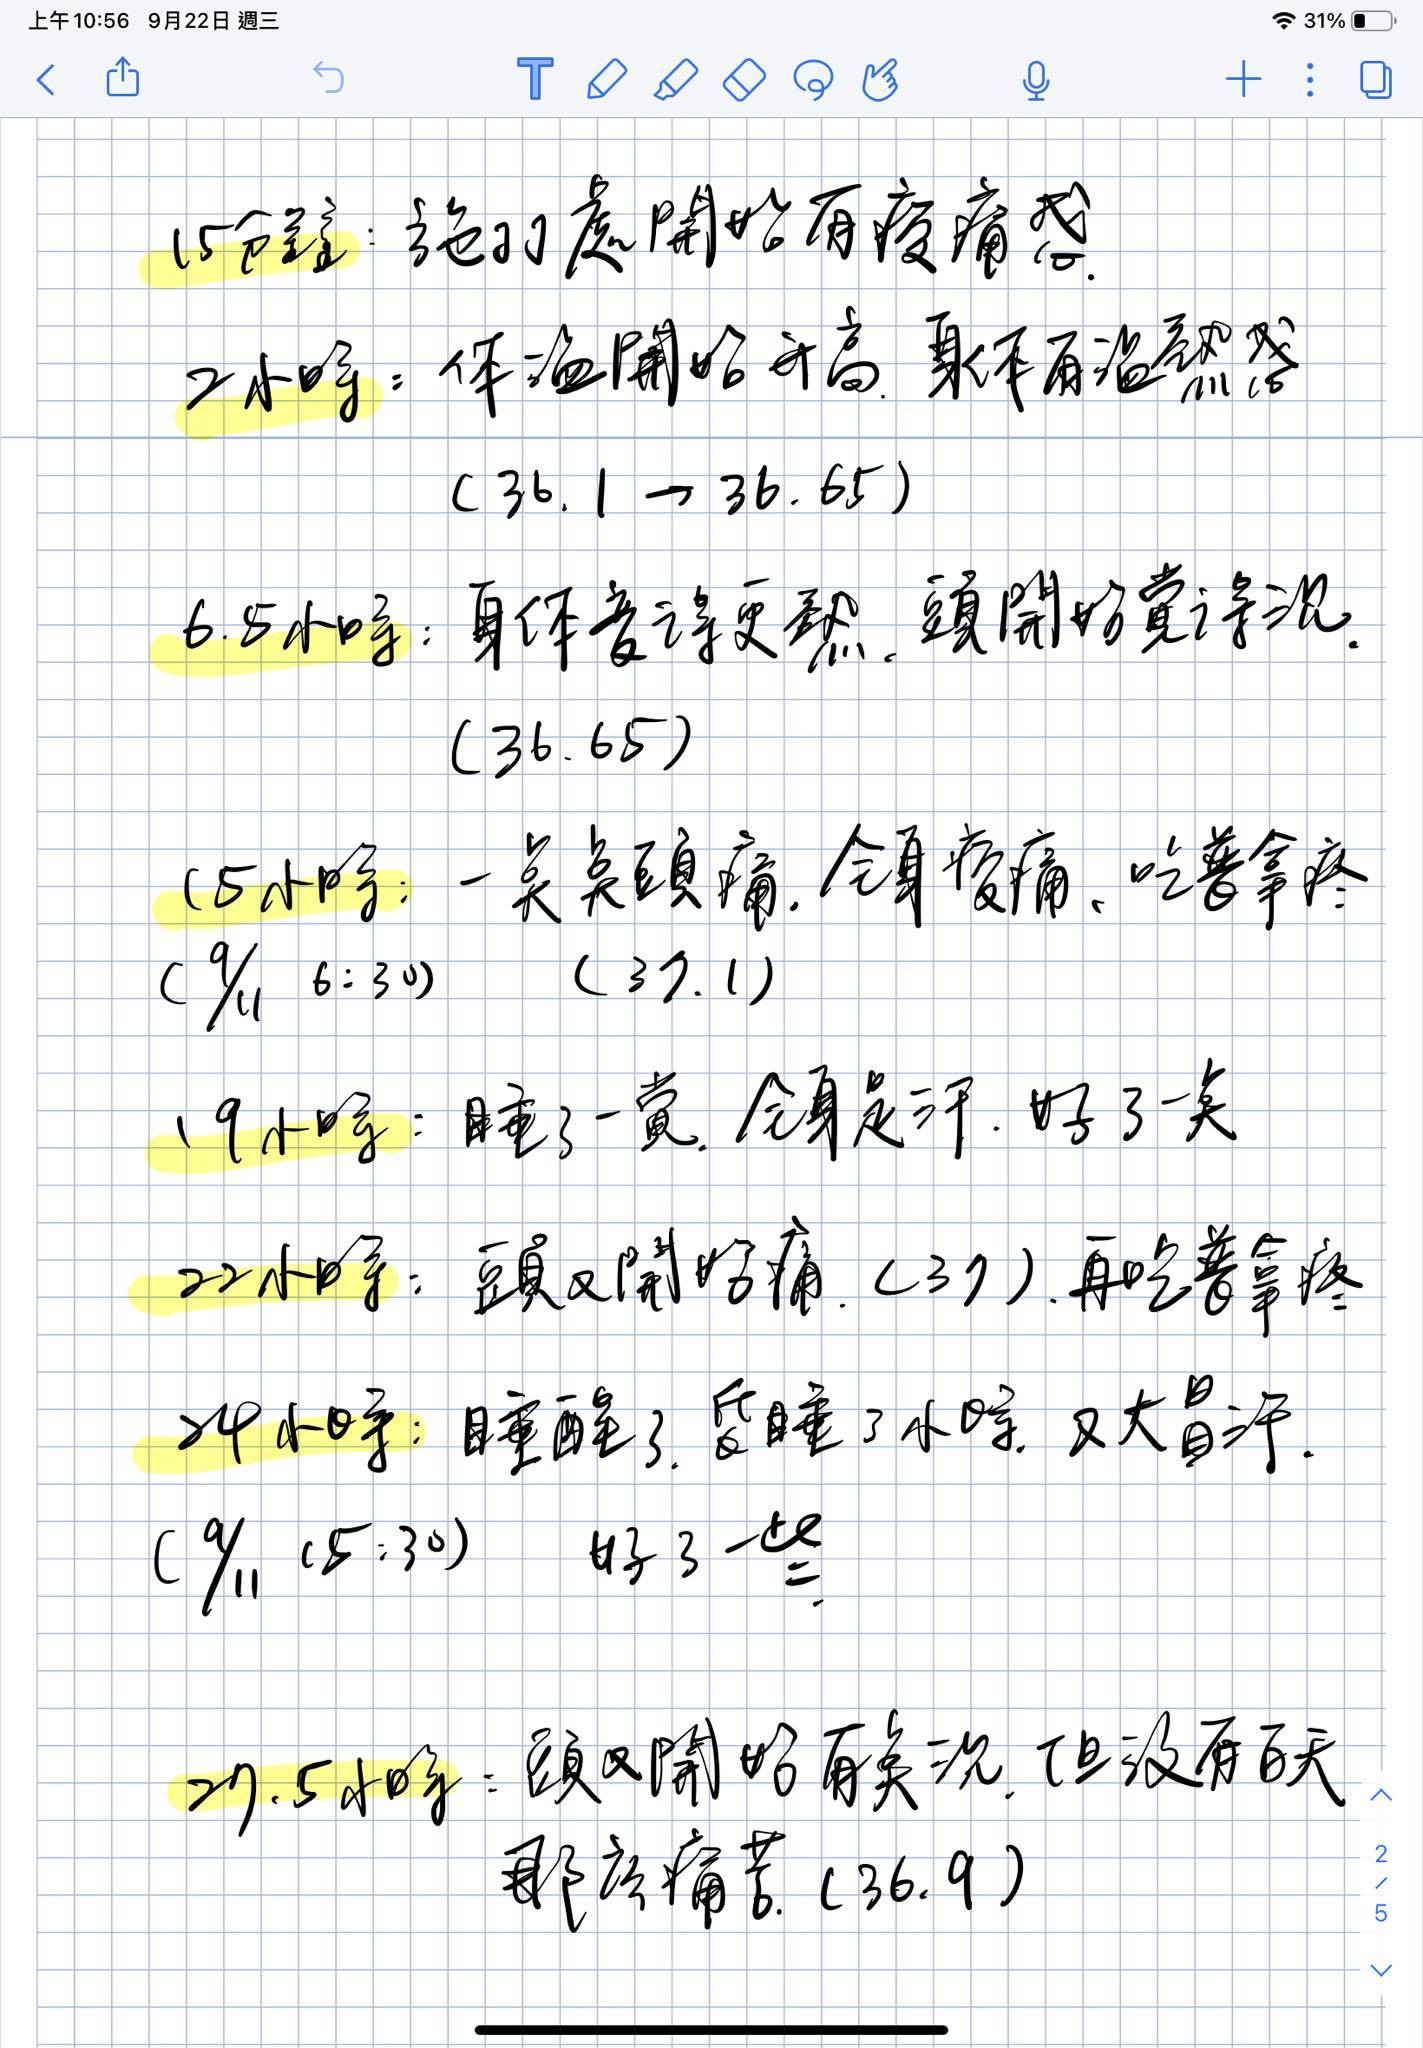 上午10:56 9月22日 週三
31%
T
15分鐘：施打處開始有痠痛感.
2小時：体溫開始升高.身体有溫熱感
(36.1→36.65)
6.5小時：身体變得更熱.頭開始覺得沉.
(36.65)
15小時：一點點頭痛.全身痠痛、吃普拿疼
(9/11 6:30) (37.1)
19小時：睡了一覺.全身是汗.好了一點
22小時：頭又開始痛.(37).再吃普拿疼
24小時：睡醒了.昏睡了小時.又大冒汗.
(9/11 15:30) 好了一些.
27.5小時：頭又開始有點沉.但沒有白天
那麼痛苦.(36.9)
2
/
5